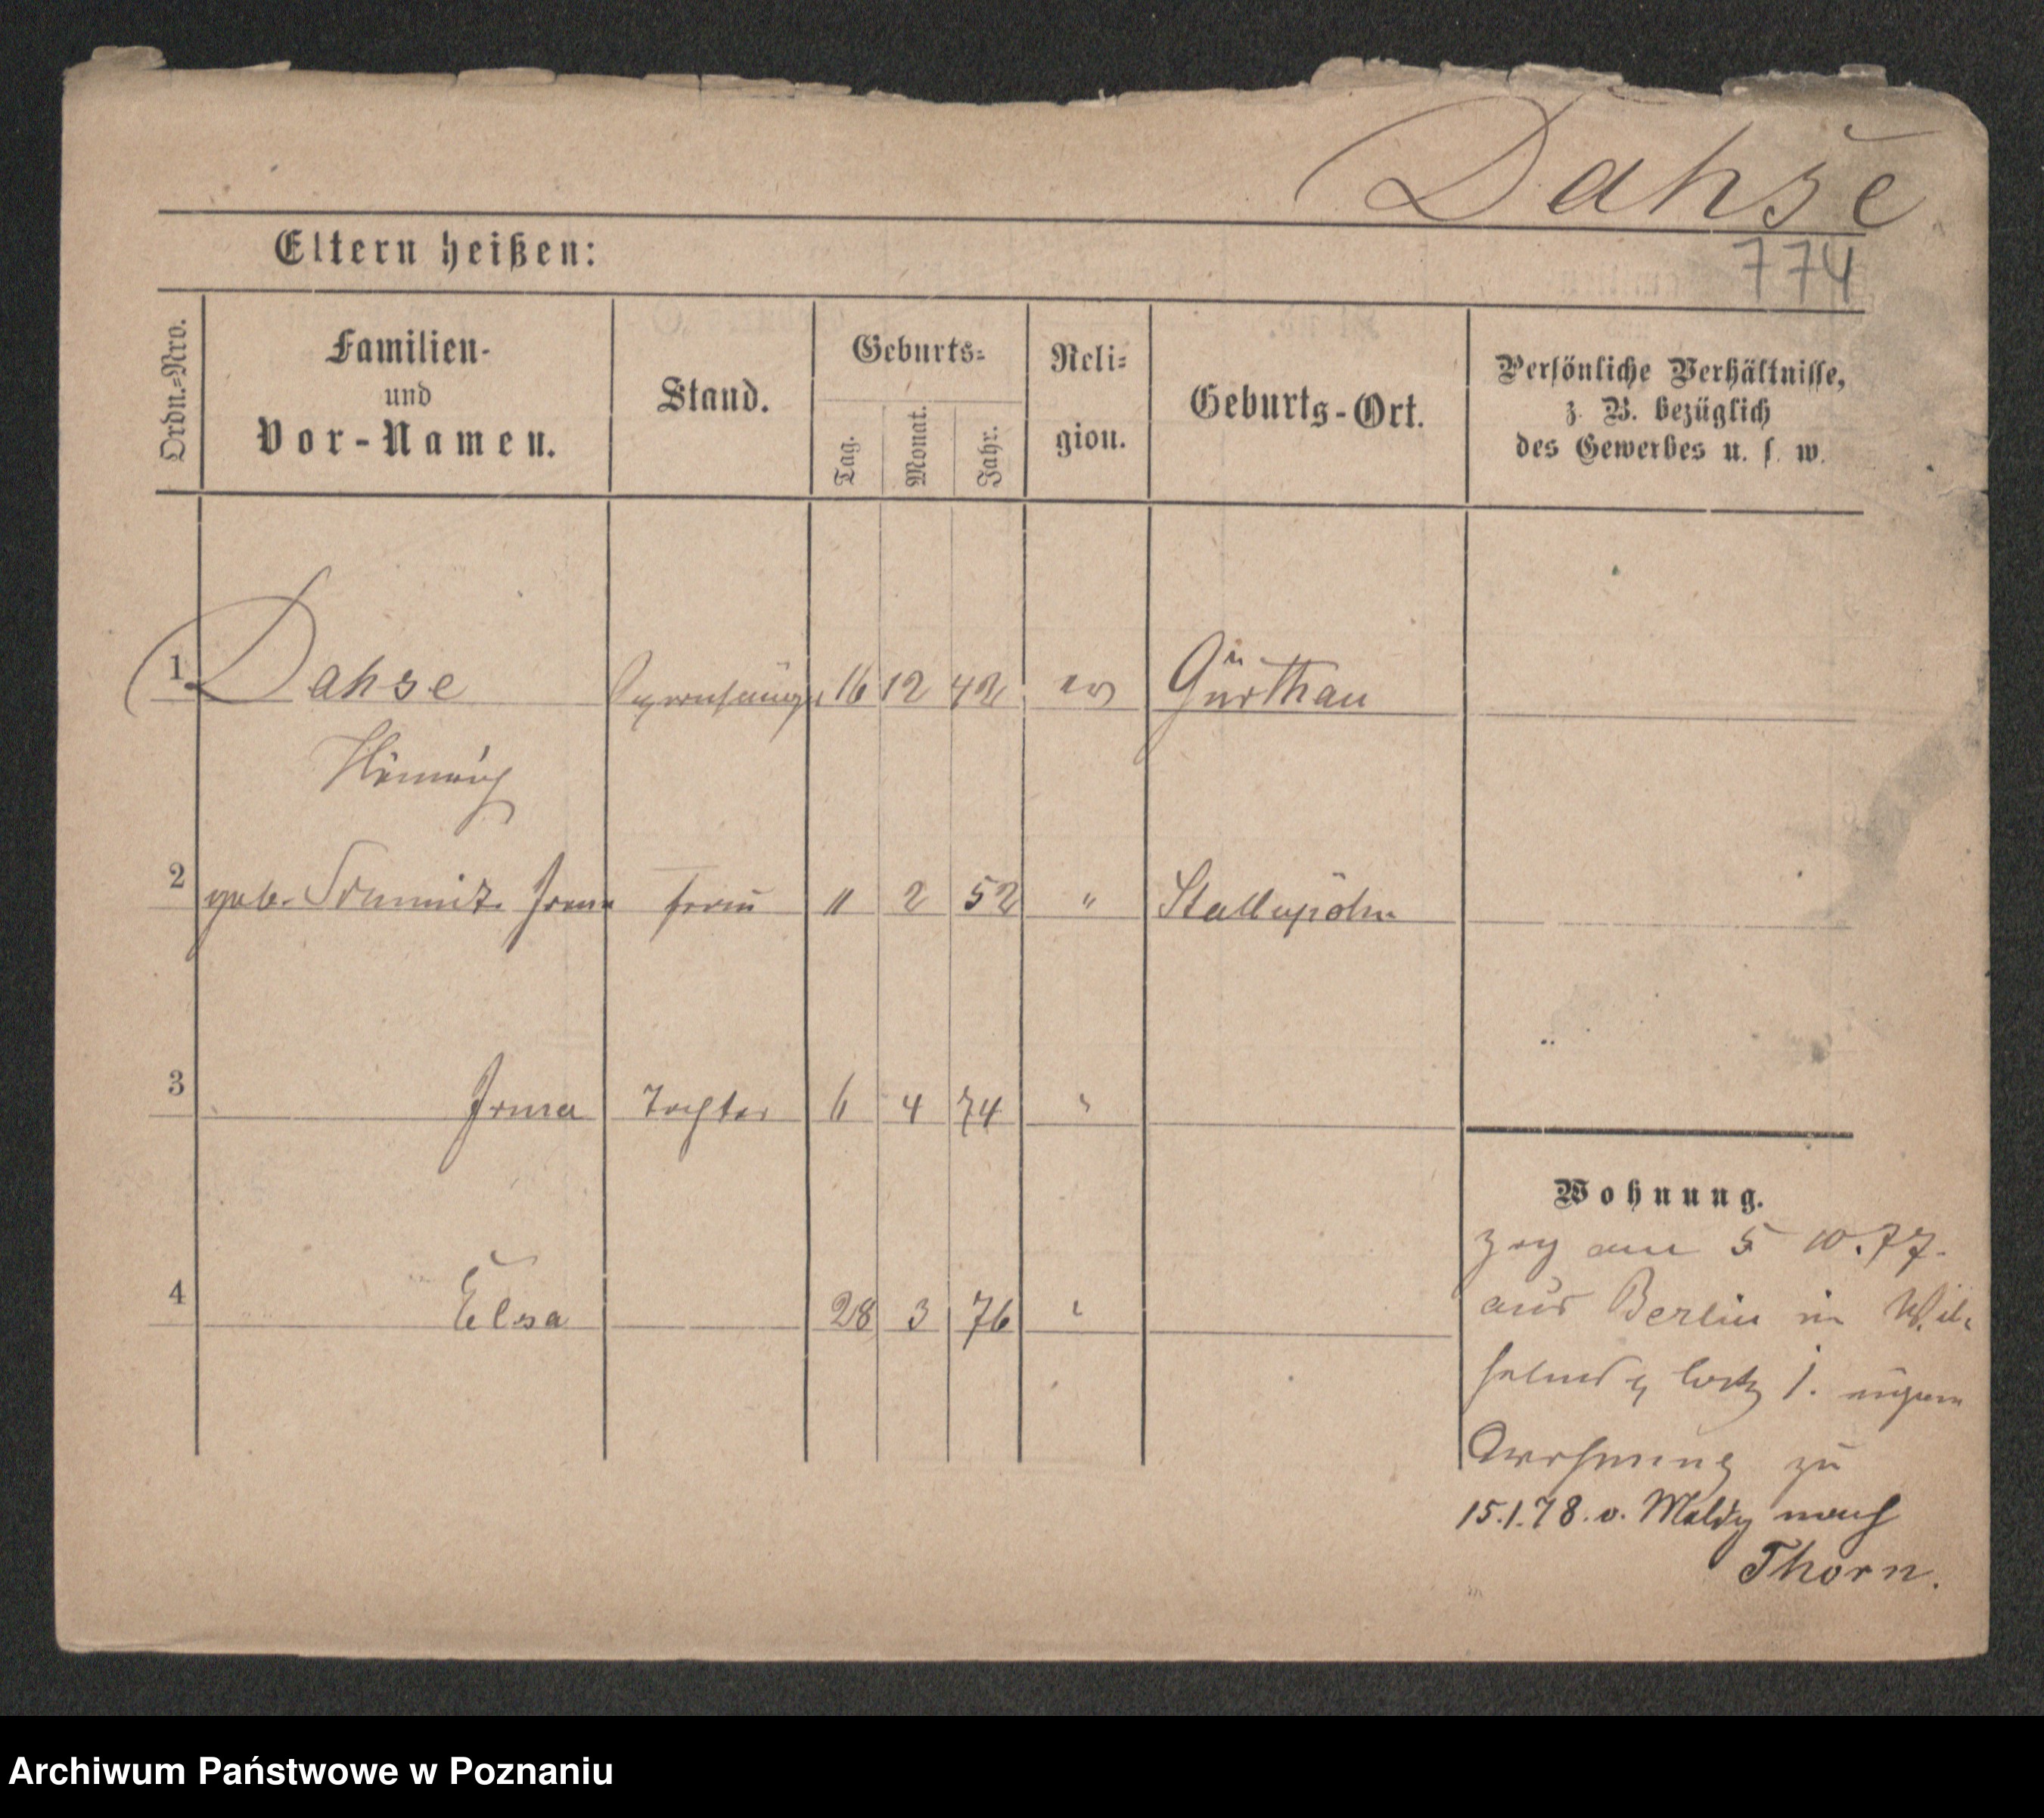 Dahse
774
Eltern heißen:
Ordn.-Nro.
Familien-
und
Vor-Namen.
Stand.
Geburts-
Tag.
Monat.
Jahr.
Reli-
gion.
Geburts-Ort.
Persönliche Verhältnisse,
z. B. bezüglich
des Gewerbes u. s. w.
1 Dahse Opernsänger 16 12 42 ev Gürthau
2 geb. Irma Frau 11 2 52 " Stallupöhn
3 Irma Tochter 6 4 74 "
4 Elsa 28 3 76 "
Wohnung.
zog am 5 10.77.
aus Berlin in Wil-
1.
zu
15.1.78. v. nach
Thorn.
Archiwum Państwowe w Poznaniu